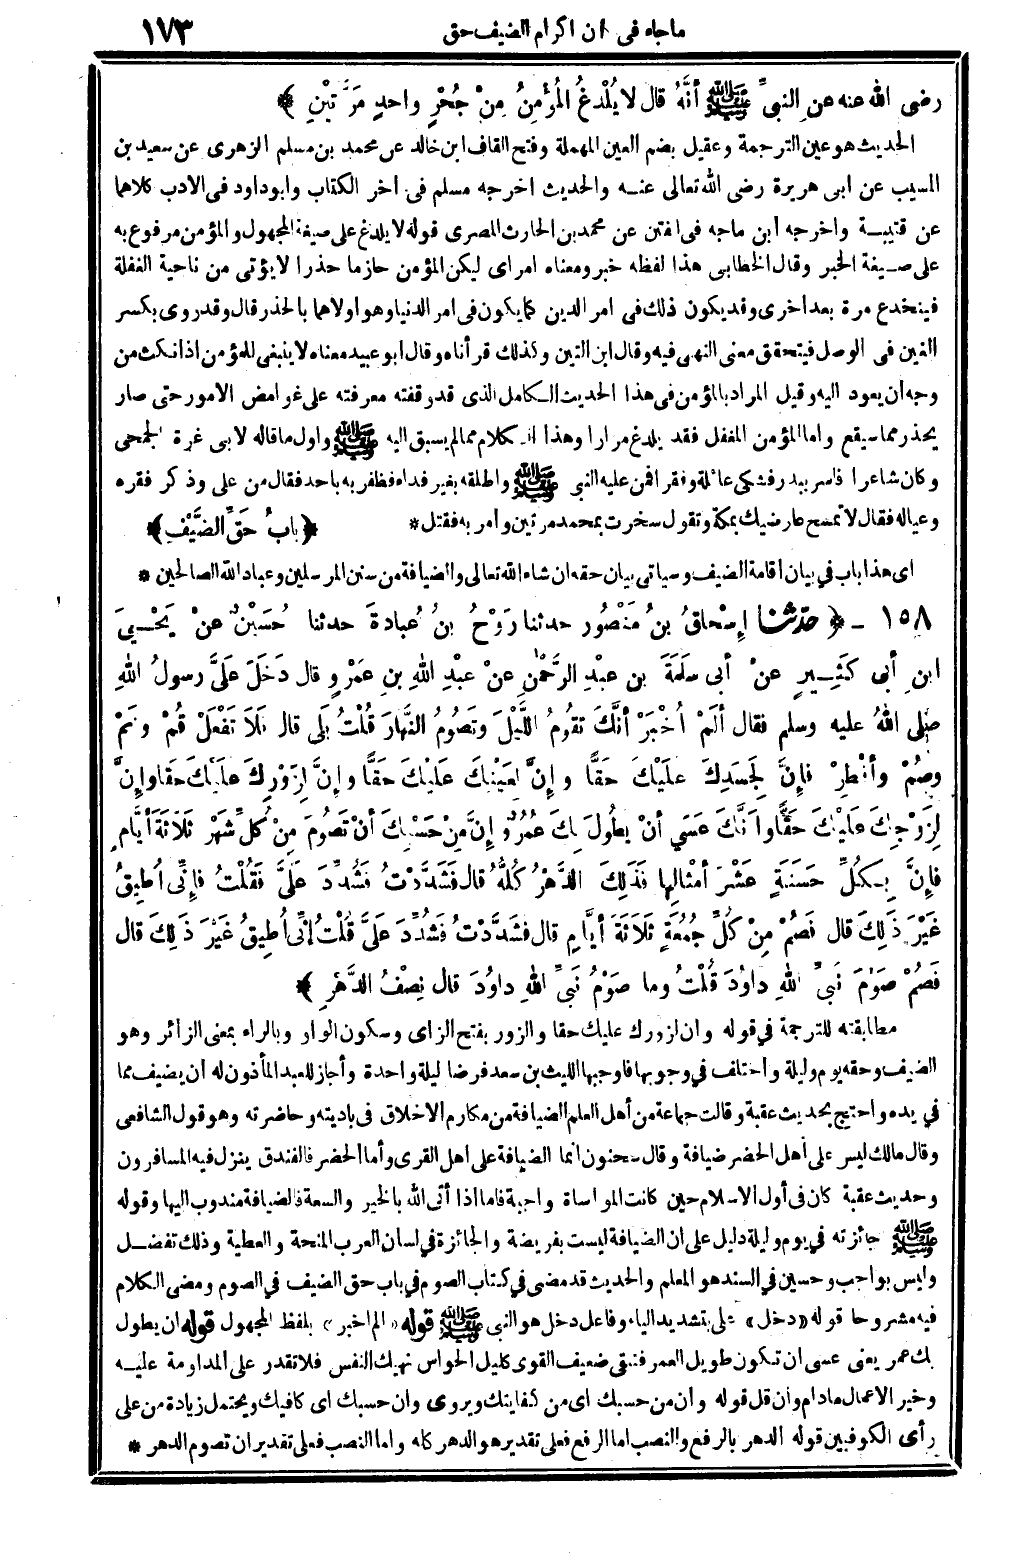 ما جاء في ان اكرام الضيف حق ١٧٣
رضى الله عنه عنِ النبيِّ ﷺ أنَّهُ قال لا يُلْدغُ المُؤْمِنُ مِنْ جُحْرٍ واحدٍ مَرَّتيْنِ ﴾
الحديث هو عين الترجمة وعقيل بضم العين المهملة وفتح القاف ابن خالد عن محمد بن مسلم الزهرى عن سعيد بن
المسيب عن ابى هريرة رضى الله تعالى عنه والحديث اخرجه مسلم فى آخر الكتاب وابو داود فى الادب كلاهما
عن قتيبة واخرجه ابن ماجه فى الفتن عن محمد بن الحارث المصرى قوله لا يلدغ على صيغة المجهول والمؤمن مرفوع به
على صيغة الخبر وقال الخطابى هذا لفظه خبر ومعناه امر اى ليكن المؤمن حازما حذرا لا يؤتى من ناحية الغفلة
فينخدع مرة بعد اخرى وقد يكون ذلك فى امر الدين كما يكون فى امر الدنيا وهو اولاهما بالحذر قال وقد روى بكسر
الغين فى الوصل فيتحقق معنى النهى فيه وقال ابن التين وكذلك قرأناه وقال ابو عبيد معناه لا ينبغى للمؤمن اذا نكث من
وجه ان يعود اليه وقيل المراد بالمؤمن فى هذا الحديث الكامل الذى قد وقفته معرفته على غوامض الامور حتى صار
يحذر مما سيقع واما المؤمن المغفل فقد يلدغ مرارا وهذا الكلام مما لم يسبق اليه ﷺ واول ما قاله لابى غرة الجمحى
وكان شاعرا فاسر ببدر فشكى عائلة وفقرا فمن عليه النبى ﷺ واطلقه بغير فداء فظفر به باحد فقال من على وذكر فقره
وعياله فقال لا تمسح عارضيك بمكة وتقول سخرت بمحمد مرتين وأمر به فقتل * ﴿ بابُ حَقِّ الضَّيْفِ ﴾
اى هذا باب في بيان اقامة الضيف وسياتى بيان حقه ان شاء الله تعالى والضيافة من سنن المرسلين وعباد الله الصالحين *
١٥٨ - ﴿ حدّثنا إسْحاقُ بنُ مَنْصُور حدثنا رَوْحُ بنُ عُبادةَ حدثنا حُسَيْنٌ عنْ يَحْيىَ
ابنِ أبى كَثِيرٍ عنْ أبى سَلَمَةَ بن عبْدِ الرَّحْمٰنِ عنْ عبْدِ اللهِ بنِ عمْرٍو قال دَخَلَ عَلَىَّ رسولُ اللهِ
صلى اللهُ عليه وسلم فقال ألَمْ أُخْبَرْ أنَّكَ تقُومُ اللَّيْلَ وتَصُومُ النَّهارَ قُلْتُ بَلَى قال فَلاَ تَفْعَلْ قُمْ ونَمْ
وصُمْ وأفْطِرْ فإنَّ لِجَسَدِكَ علَيْكَ حَقًّا وإنَّ لِعَيْنِكَ عَلَيْكَ حَقًّا وإنَّ لِزَوْرِكَ علَيْكَ حَقًّا وإنَّ
لِزَوْجِكَ عَلَيْكَ حَقًّا وإنَّكَ عَسَى أنْ يطُولَ بِكَ عُمُرٌ وإنَّ مِنْ حَسْبِكَ أنْ تَصُومَ مِنْ كُلِّ شَهْرٍ ثَلاَثَةَ أيَّامٍ
فإنَّ بِكُلِّ حَسَنَةٍ عَشْرَ أمْثالِها فَذَلِكَ الدَّهْرُ كُلُّهُ قال فَشَدَّدْتُ فَشُدِّدَ عَلَىَّ فَقُلْتُ فإنِّى أُطِيقُ
غَيْرَ ذَلِكَ قال فَصُمْ مِنْ كُلِّ جُمُعَةٍ ثَلاَثَةَ أيَّامٍ قال فشَدَّدْتُ فَشُدِّدَ عَلَىَّ قُلْتُ إنِّى أُطِيقُ غَيْرَ ذَلِكَ قال
فَصُمْ صَوْمَ نَبىِّ اللهِ داوُدَ قُلْتُ وما صَوْمُ نَبىِّ اللهِ داوُدَ قال نِصْفُ الدَّهْرِ ﴾
مطابقته للترجمة في قوله وان لزورك عليك حقا والزور بفتح الزاى وسكون الواو وبالراء بمعنى الزائر وهو
الضيف وحقه يوم وليلة واختلف في وجوبها فاوجبها الليث بن سعد فرضا ليلة واحدة وأجاز للعبد المأذون له أن يضيف مما
في يده واحتج بحديث عقبة وقالت جماعة من أهل العلم الضيافة من مكارم الاخلاق فى باديته وحاضرته وهو قول الشافعى
وقال مالك ليس على أهل الحضر ضيافة وقال سحنون انما الضيافة على اهل القرى وأما الحضر فالفندق ينزل فيه المسافرون
وحديث عقبة كان فى أول الاسلام حين كانت المواساة واجبة فاما اذا أتى الله بالخير والسعة فالضيافة مندوب اليها وقوله
ﷺ جائزته في يوم وليلة دليل على ان الضيافة ليست بفريضة والجائزة في لسان العرب المنحة والعطية وذلك تفضل
وليس بواجب وحسين في السند هو المعلم والحديث قد مضى في كتاب الصوم في باب حق الضيف في الصوم ومضى الكلام
فيه مشروحا قوله «دخل» على بتشديد الياء وفاعل دخل هو النبى ﷺ قوله «الم اخبر» بلفظ المجهول قوله ان يطول
بك عمر يعنى عسى ان تكون طويل العمر فتبقى ضعيف القوى كليل الحواس نهيك النفس فلا تقدر على المداومة عليه
وخير الاعمال ما دام وان قل قوله وان من حسبك اى من كفايتك ويروى وان حسبك اى كافيك ويحتمل زيادة من على
رأى الكوفيين قوله الدهر بالرفع والنصب اما الرفع فعلى تقدير هو الدهر كله واما النصب فعلى تقدير ان تصوم الدهر *